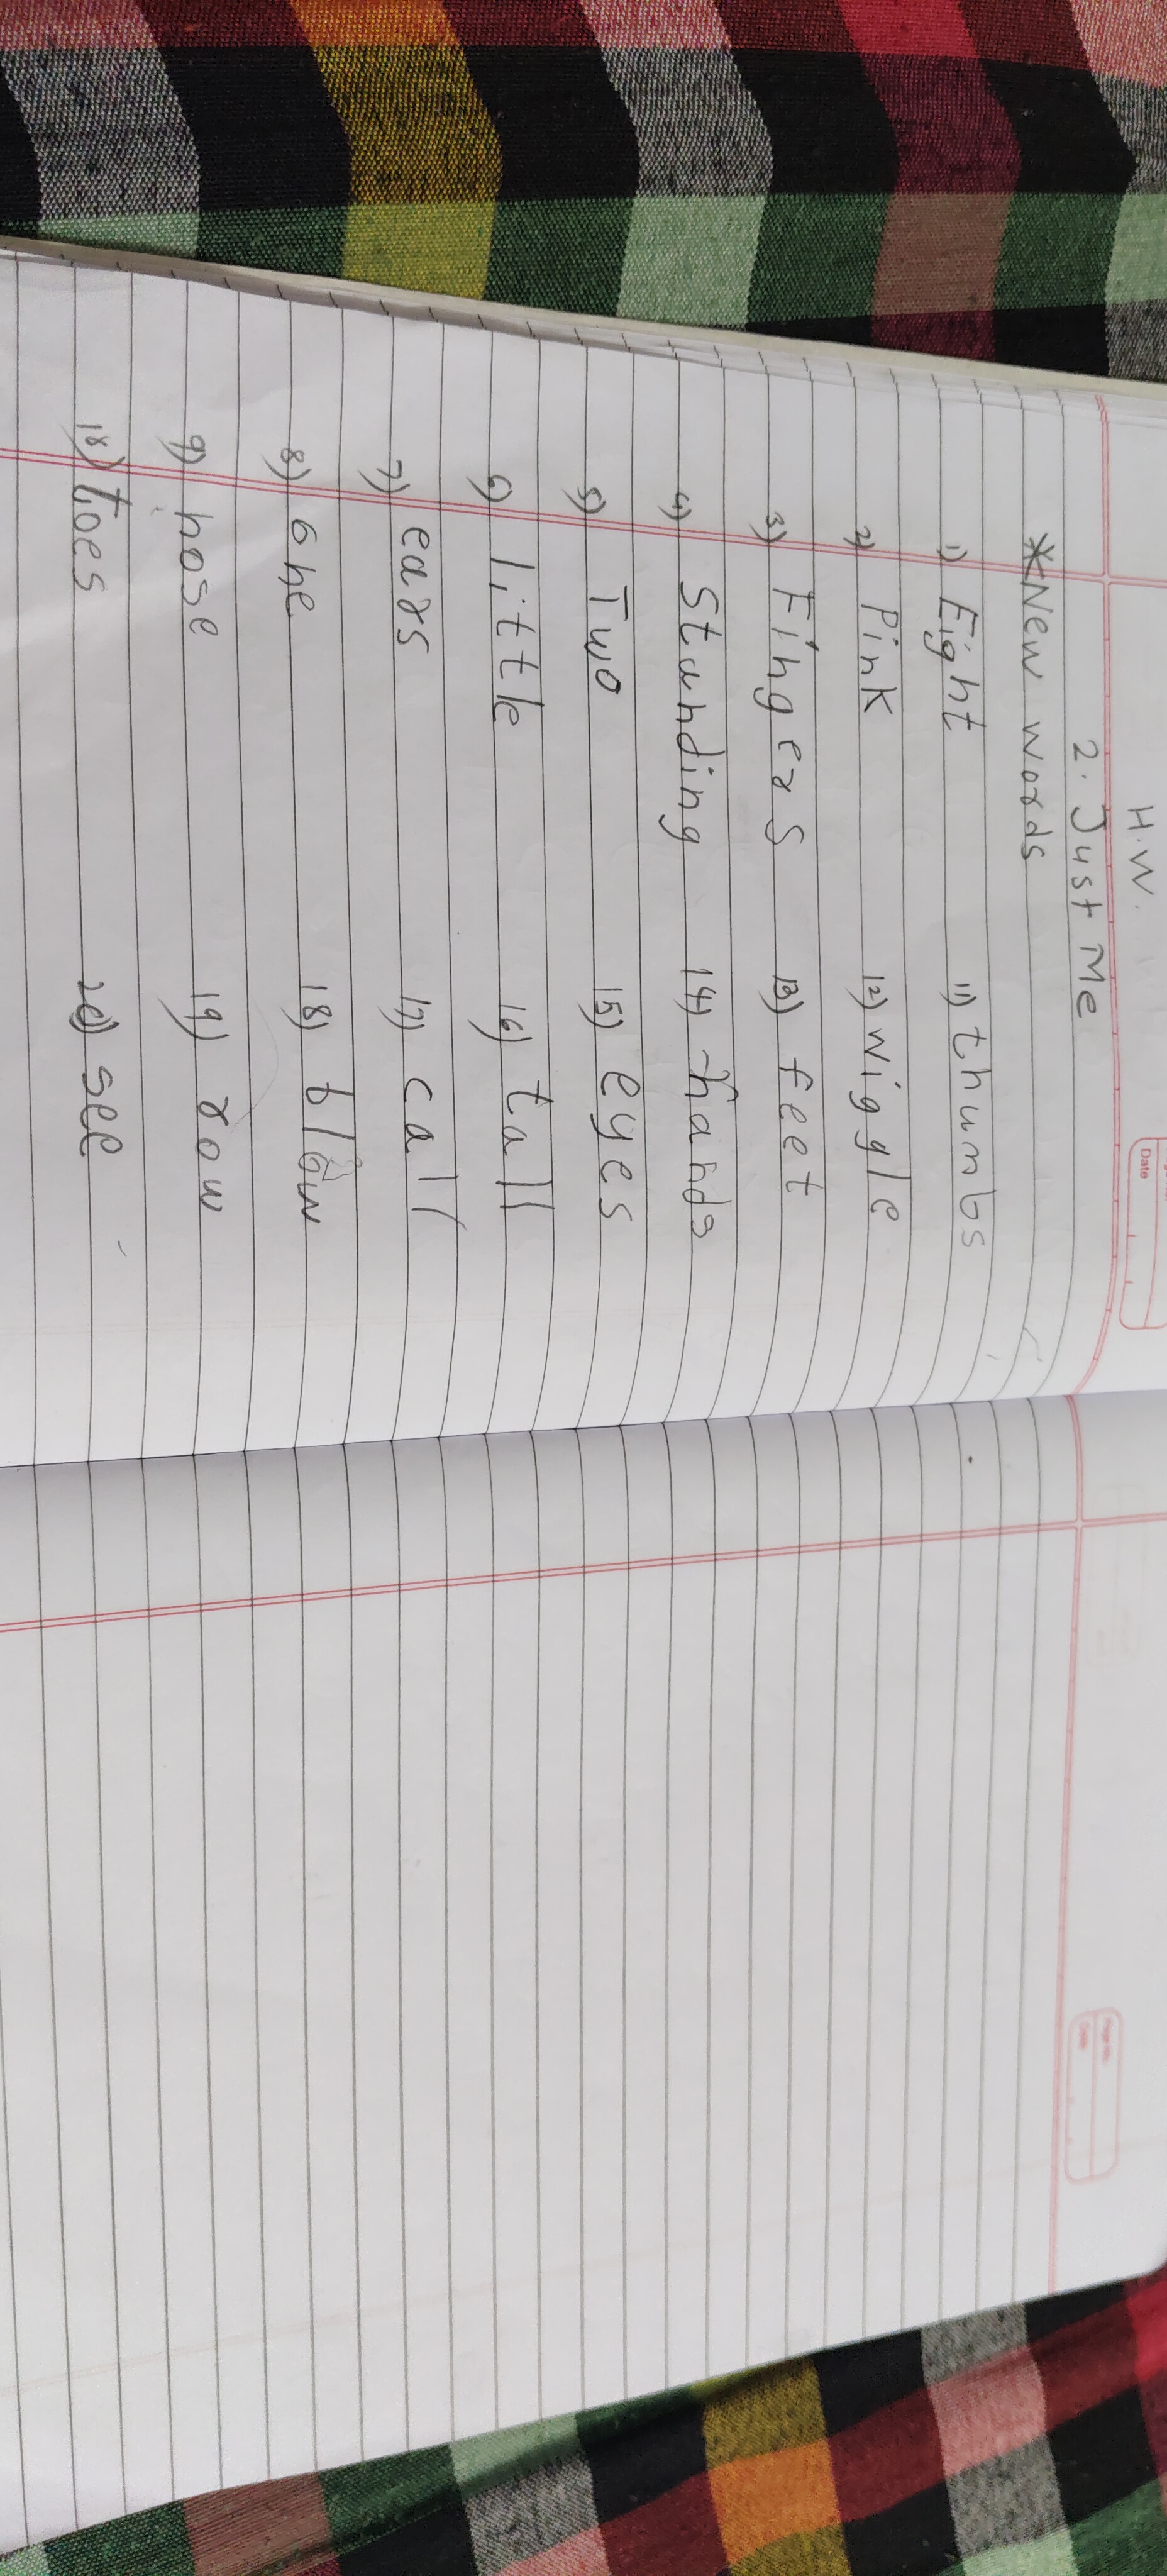 H.W.
Date
2. Just Me
*New words
1) Eight 11) thumbs
2) Pink 12) wiggle
3) Fingers 13) feet
4) Standing 14) hands
5) Two 15) eyes
6) little 16) tall
7) ears 17) call
8) one 18) blow
9) nose 19) row
18) toes 20) see
Page No.
Date